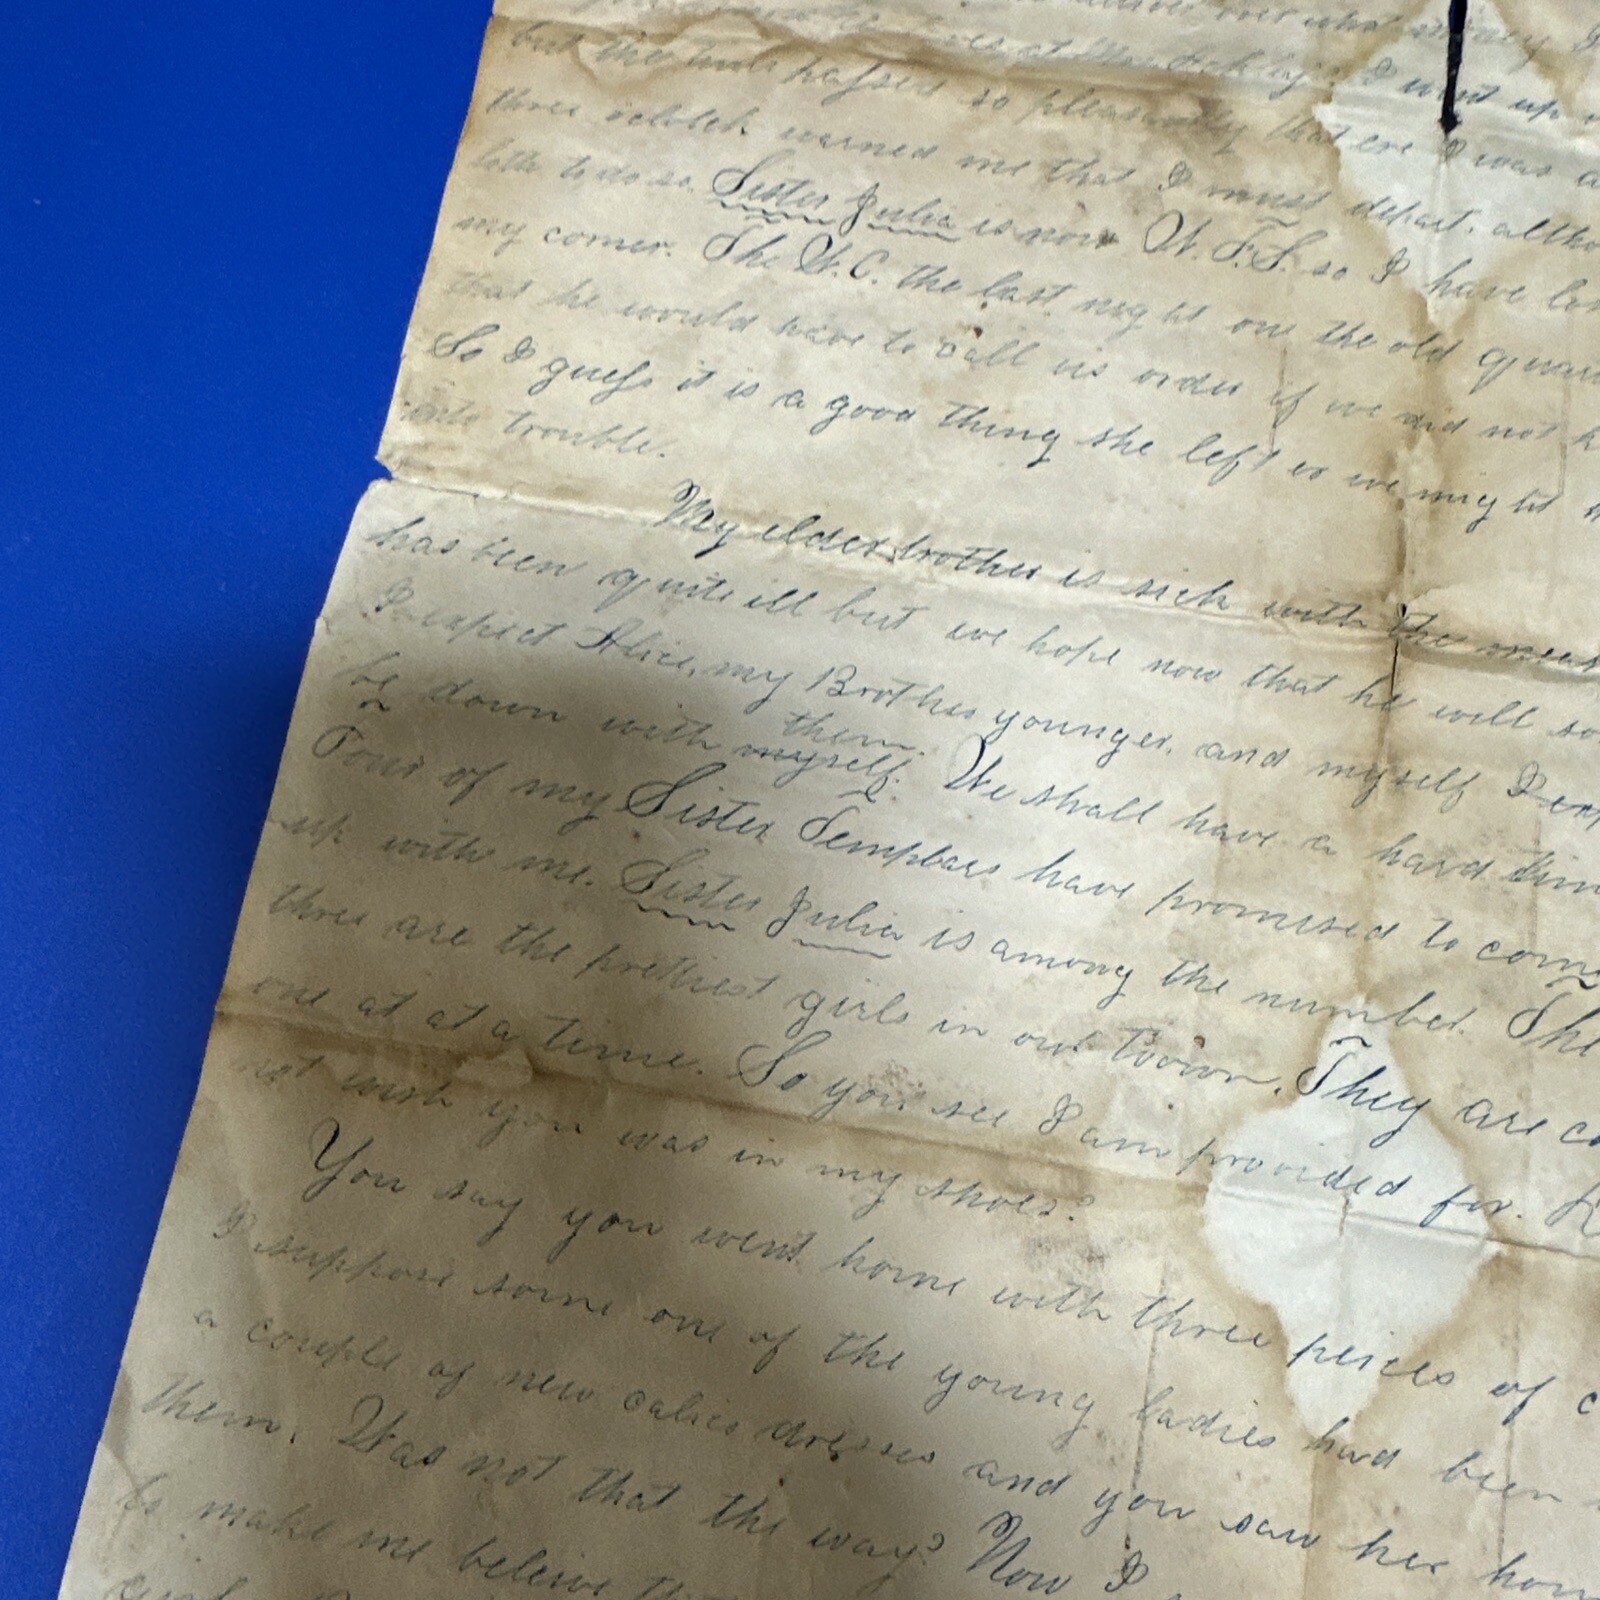 over what money I
but the time passed so pleasantly that ere I was a
three oclock warned me that I must depart. altho
loth to do so. Sister Julia is now W. T. S. so I have los
my corner. The W. C. the last night on the old quar
that he would have to call us order if we did not k
So I guess it is a good thing she left or we might
into trouble.
My elder brother is sick with the meas
has been quite ill but we hope now that he will so
I expect Alice, my Brother younger, and myself I exp
them.
be down with myself. We shall have a hard tim
Four of my Sister Templars have promised to come
up with me. Sister Julia is among the number. The
three are the prettiest girls in our town. They are co
one at at a time. So you see I am provided for.
not wish you was in my shoes?
You say you went home with three peices of c
I suppose some one of the young ladies had been
a couple of new calico dresses and you saw her hom
them. Was not that the way? Now I
to make me beleive